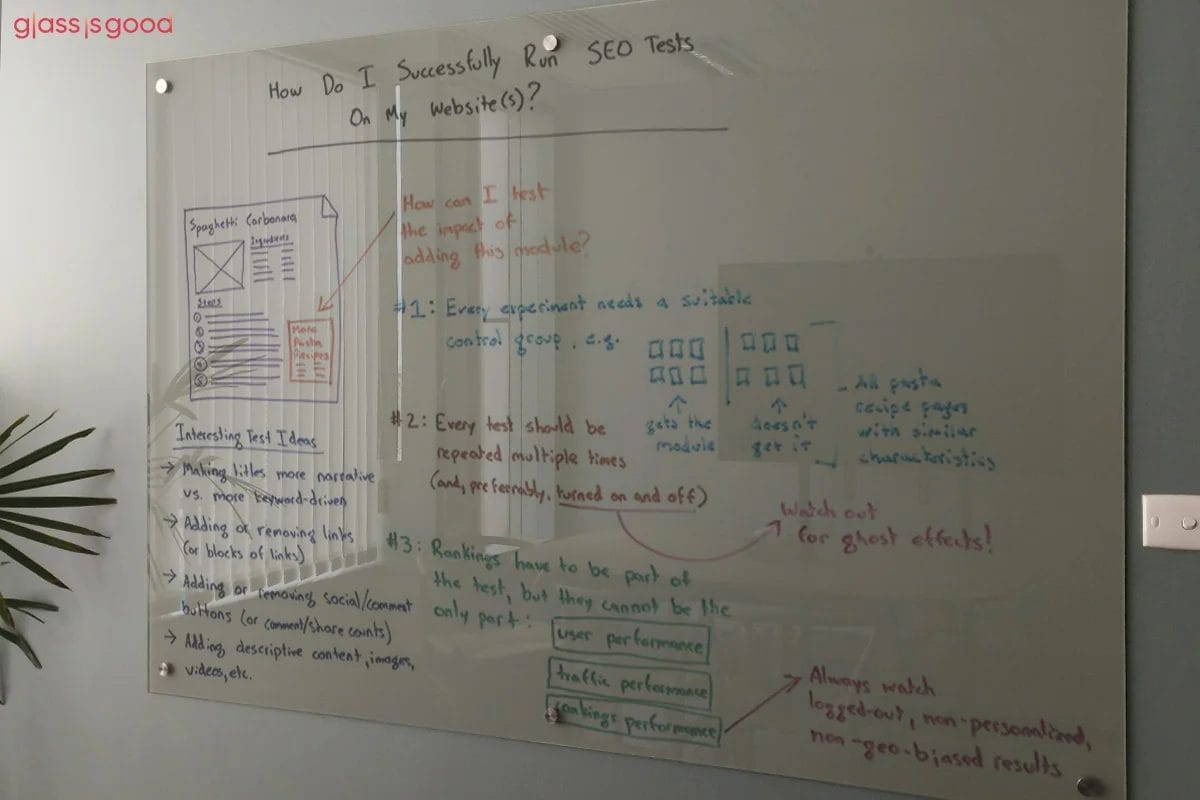 glassisgood
How Do I Successfully Run SEO Tests
On My Website(s)?
Spaghetti Carbonara
Ingredients
Steps
1
2
3
4
5
More
Pasta
Recipes
How can I test
the impact of
adding this module?
#1: Every experiment needs a suitable
control group, e.g.
gets the
module
doesn't
get it
All pasta
recipe pages
with similar
characteristics
#2: Every test should be
repeated multiple times
(and, preferrably, turned on and off)
Watch out
for ghost effects!
#3: Rankings have to be part of
the test, but they cannot be the
only part:
user performance
traffic performance
rankings performance
Always watch
logged-out, non-personalized,
non-geo-biased results
Interesting Test Ideas
→ Making titles more narrative
vs. more keyword-driven
→ Adding or removing links
(or blocks of links)
→ Adding or removing social/comment
buttons (or comment/share counts)
→ Adding descriptive content, images,
videos, etc.